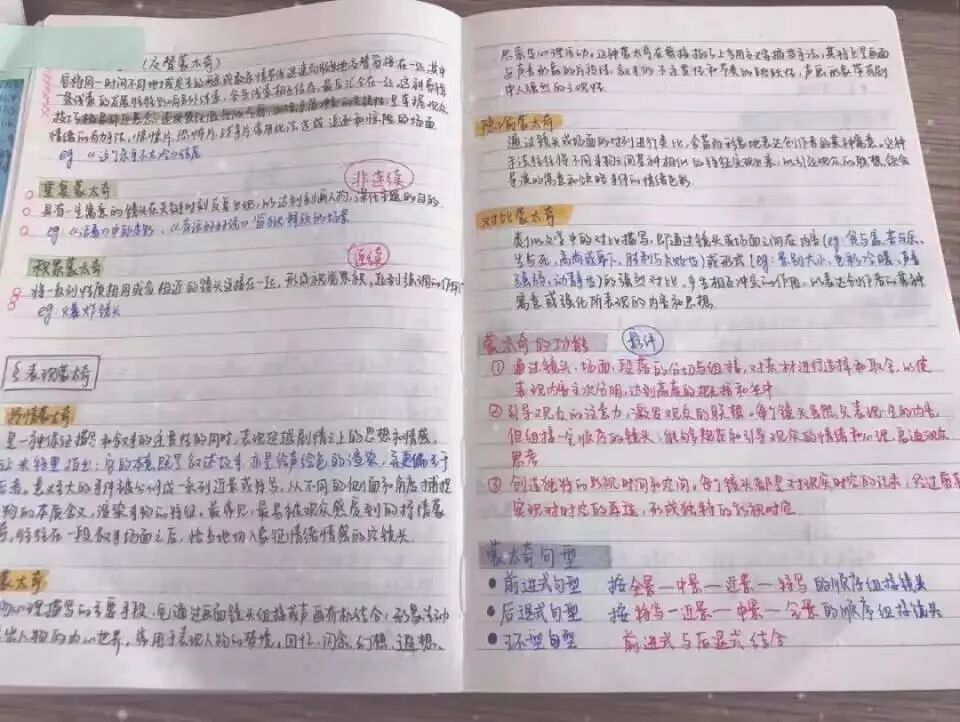 (及声蒙太奇)
将同一时间不同地域发生的两条或数条情节线迅速而频繁地交替剪接在一起,其中
一条线索的发展往往影响另外线索,各条线索相互依存,最后汇合在一起,这种剪辑
技巧
情绪的有力手法,惊险片、恐怖片、战争片常用此法造成追逐和惊险的场面
eg:《这个杀手不太冷》结尾
重复蒙太奇 非连续
具有一定寓意的镜头在关键时刻反复出现,以达到刻画人物,深化主题的目的
eg:《活着》中的
积累蒙太奇 连续
将一系列性质相同或相近的镜头连接在一起,形成视觉积累,起到强调的作用
eg:爆炸镜头
表现蒙太奇
抒情蒙太奇
是一种保证描写和叙事的连贯性的同时,表现超越剧情之上的思想和情感,
让·米特里指出:它的本意既是叙述故事,亦是绘声绘色的渲染,并更偏重于
后者。意义重大的事件被分解成一系列近景或特写,从不同的侧面和角度捕捉
物的本质含义,渲染事物的特征,最常见、最易被观众感受到的抒情蒙
,往往在一段叙事场面之后,恰当地切入象征情绪情感的空镜头
蒙太奇
心理描写的重要手段,它通过画面镜头组接或声画有机结合,形象生动
出人物的内心世界,常用于表现人物的梦境、回忆、闪念、幻想、遐想、
思索等心理活动,这种蒙太奇在剪接技巧上多用交叉穿插等手法,其特点是画面
与声音形象的片段性、叙述的不连贯性和节奏的跳跃性,声画形象带有剧
中人强烈的主观性
隐喻蒙太奇
通过镜头或场面的对列进行类比,含蓄而形象地表达创作者的某种寓意。这种
手法往往将不同事物之间某种相似的特征突现出来,以引起观众的联想,领会
导演的寓意和领略事件的情绪色彩
对比蒙太奇
类似文学中的对比描写,即通过镜头或场面之间在内容(eg:贫与富、苦与乐、
生与死,高尚或卑下,胜利与失败等)或形式(eg:景别大小、色彩冷暖,声音
强弱、动静等)的强烈对比,产生相互冲突的作用,以表达创作者的某种
寓意或强化所表现的内容和思想
蒙太奇的功能 影评
① 通过镜头、场面、段落的分切与组接,对素材进行选择和取舍,以使
表现内容主次分明,达到高度的概括和集中
② 引导观众的注意力,激发观众的联想。每个镜头虽然只表现一定的内容,
但组接一定顺序的镜头,能够规范和引导观众的情绪和心理,启迪观众
思考
③ 创造独特的影视时间和空间。每个镜头都是对现实时空的记录,经过剪辑
实现对时空的再造,形成独特的影视时空
蒙太奇句型
• 前进式句型 按全景一中景一近景一特写的顺序组接镜头
• 后退式句型 按特写一近景一中景一全景的顺序组接镜头
• 环型句型 前进式与后退式结合